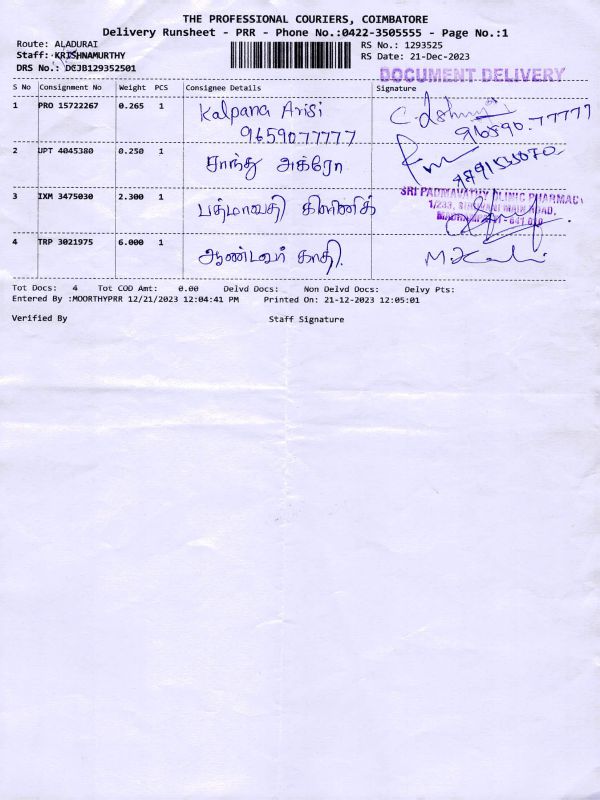 THE PROFESSIONAL COURIERS, COIMBATORE
Delivery Runsheet - PRR - Phone No.:0422-3505555 - Page No.:1
Route: ALADURAI
RS No.: 1293525
Staff: KRISHNAMURTHY
RS Date: 21-Dec-2023
DRS No.: DCJB129352501
DOCUMENT DELIVERY
S No Consignment No Weight PCS Consignee Details Signature
1 PRO 15722267 0.265 1 Kalpana Arisi
9659077777
96590-77777
2 UPT 4045380 0.250 1 சாந்து அக்ரோ
3 IXM 3475030 2.300 1 பத்மாவதி கிளினிக்
SRI PADMAVATHY CLINIC PHARMACY
MAIN ROAD,
4 TRP 3021975 6.000 1 ஆண்டவர் காதி.
Tot Docs: 4 Tot COD Amt: 0.00 Delvd Docs: Non Delvd Docs: Delvy Pts:
Entered By :MOORTHYPRR 12/21/2023 12:04:41 PM Printed On: 21-12-2023 12:05:01
Verified By Staff Signature